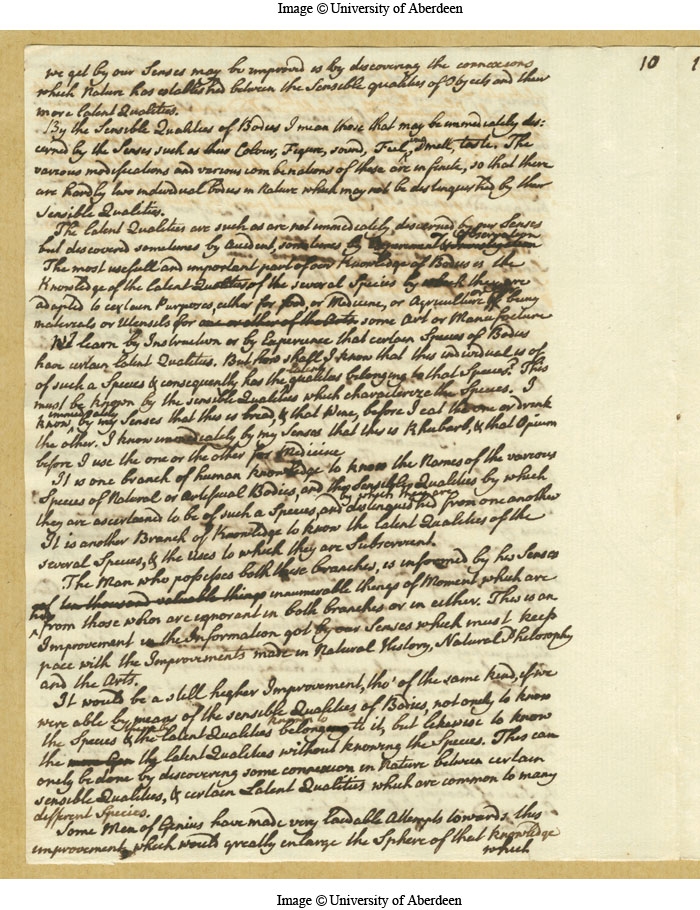 Image © University of Aberdeen
10
we get by our Senses may be improved is by discovering the connexions
which Nature has established between the Sensible qualities of Objects and their
more latent Qualities.
By the Sensible Qualities of Bodies I mean those that may be immediately dis-
cerned by the Senses such as their Colour, Figure, sound, Feel, and Smell, taste. The
various modifications and various combinations of these are infinite, so that there
are hardly two individual bodies in Nature which may not be distinguished by their
Sensible Qualities.
The Latent Qualities are such as are not immediately discerned by our Senses
but discovered sometimes by Accident, sometimes by Experiment or Observation
The most usefull and important part of our Knowledge of Bodies is the
Knowledge of the latent Qualities of the several Species by which they are
adapted to certain Purposes, either for food, or Medicine, or Agriculture or being
materials or Utensils for one or other of the Arts some Art or Manufacture
We learn by Instruction or by Experience that certain Species of Bodies
have certain latent Qualities. But how shall I know that this individual is of
of such a Species & consequently has the latent qualities belonging to that Species? This
must be known by the sensible Qualities which characterize the Species. I
know immediately by my Senses that this is bread, & that Wine, before I eat the one or drink
the other. I know immediately by my Senses that this is Rhubarb, & that Opium
before I use the one or the other for Medicine
It is one branch of human knowledge to know the Names of the various
Species of Natural or Artificial Bodies, and the Sensible Qualities by which
they are ascertained to be of such a Species, and by which they are distinguished from one another
It is another Branch of Knowledge to know the latent Qualities of the
several Species, & the uses to which they are Subservient.
The Man who possesses both these branches, is informed by his Senses
of ten thousand valuable things innumerable things of Moment which are
hid from those who are ignorant in both branches or in either. This is an
Improvement in the Information got by our Senses which must keep
pace with the Improvements made in Natural History, Natural Philosophy
and the Arts.
It would be a still higher Improvement, tho' of the same kind, if we
were able by means of the sensible Qualities of Bodies, not only to know
the Species & the latent Qualities known to belonging to it, but likewise to know
the the latent Qualities without knowing the Species. This can
onely be done by discovering some connexion in Nature between certain
sensible Qualities, & certain Latent Qualities which are common to many
different Species.
Some Men of Genius have made very laudable Attempts towards this
improvement, which would greatly enlarge the Sphere of that knowledge
which
Image © University of Aberdeen